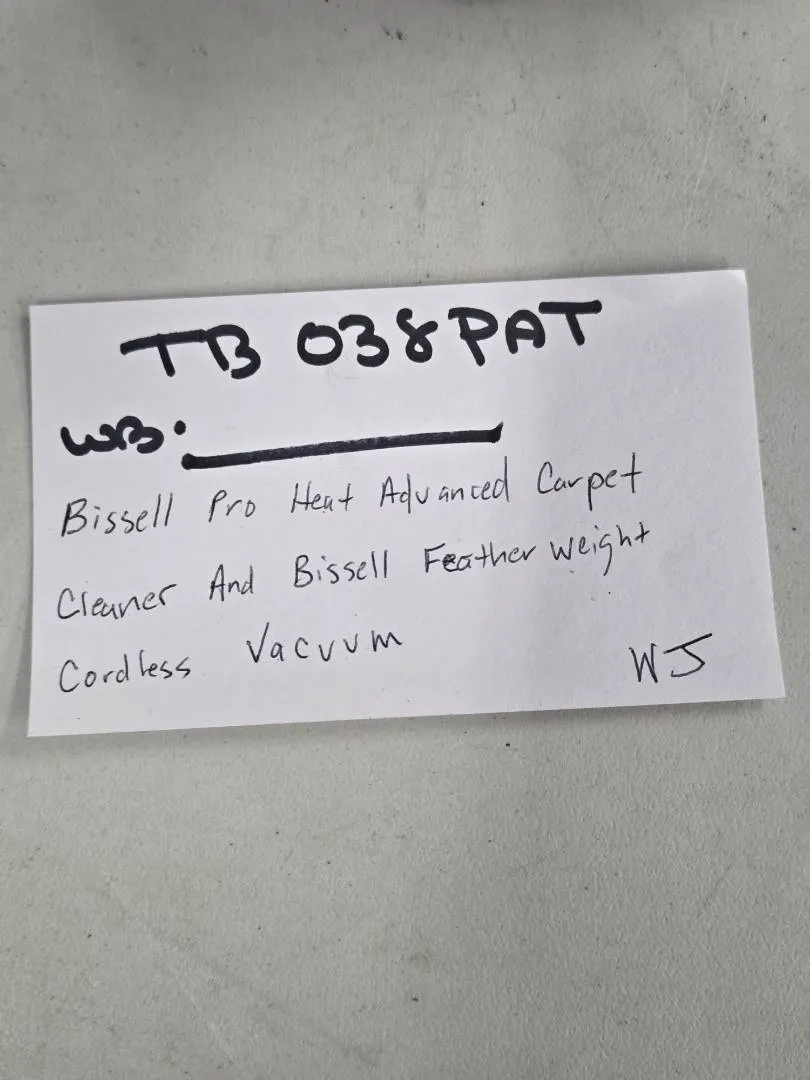 TB 038PAT
WB: 
Bissell Pro Heat Advanced Carpet
Cleaner And Bissell Featherweight
Cordless Vacuum
WJ